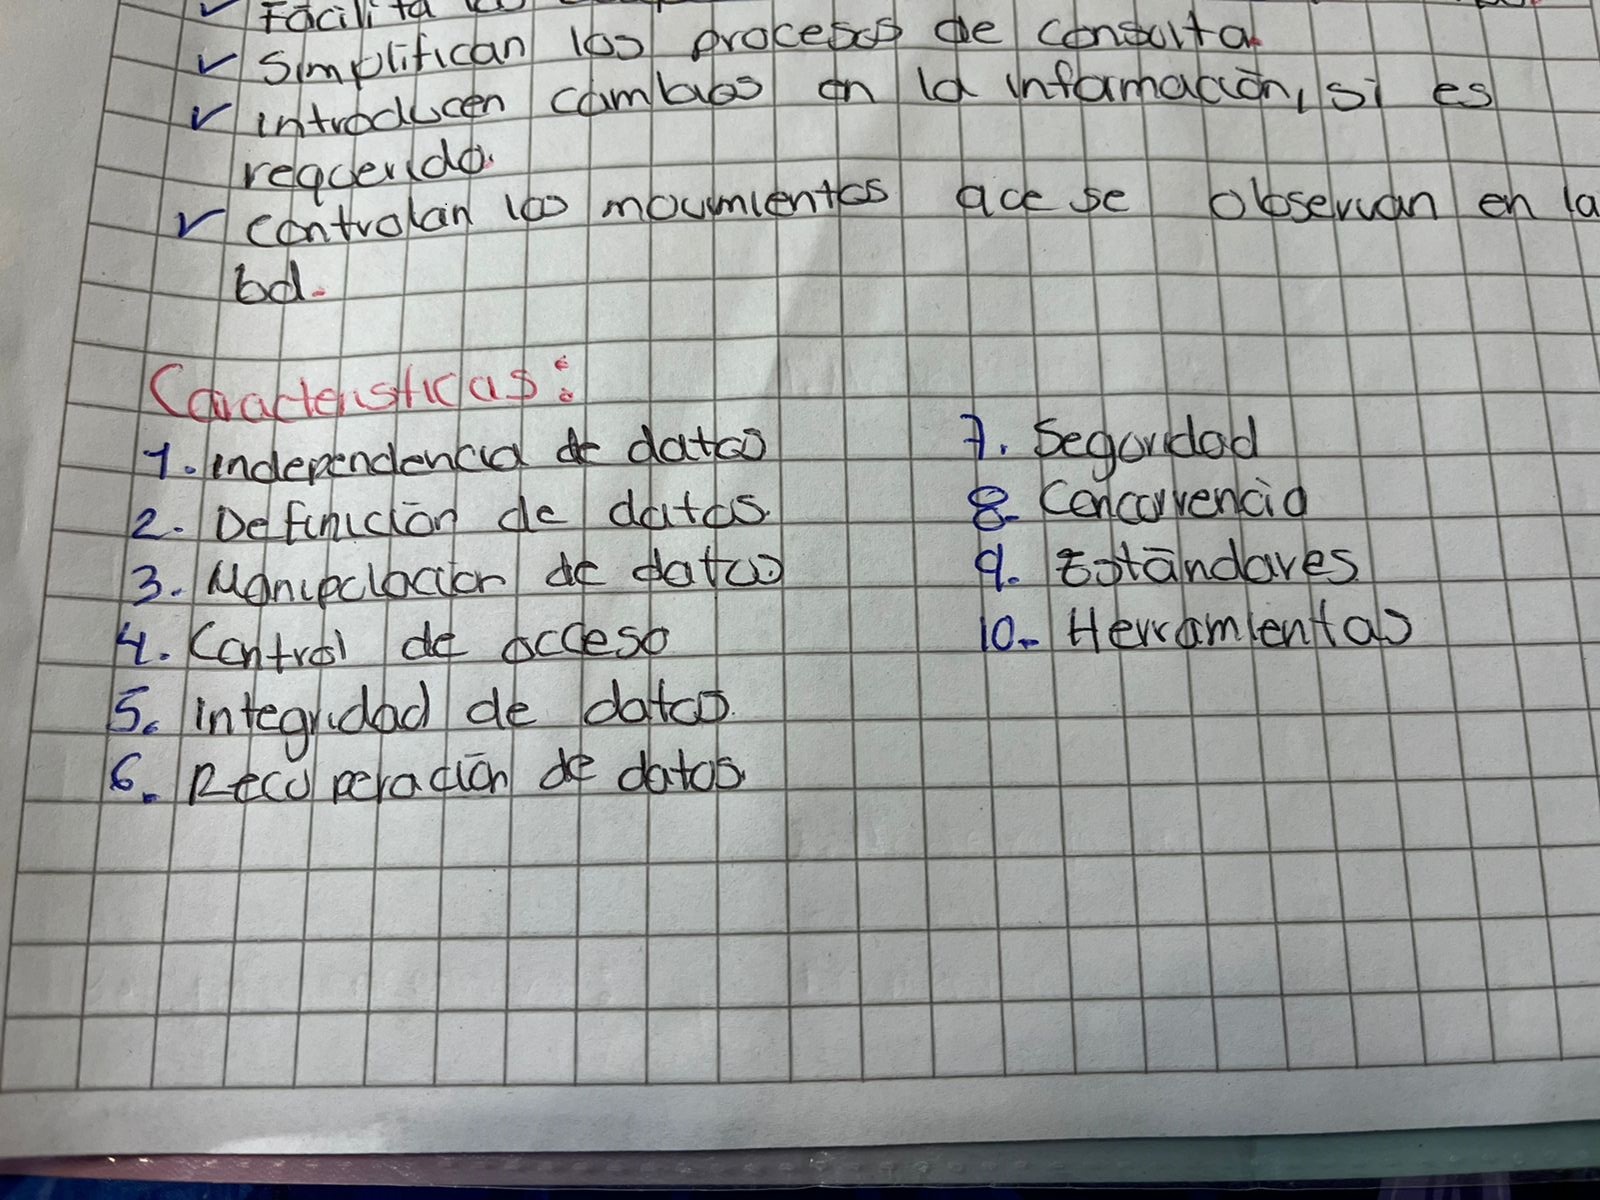 ✓ Facilita
✓ Simplifican los procesos de consulta.
✓ introducen cambios en la información, si es
requerido.
✓ controlan los movimientos que se observan en la
bd.
Características:
1. independencia de datos
2. Definición de datos.
3. Manipulación de datos
4. Control de acceso
5. integridad de datos.
6. Recuperación de datos.
7. Seguridad
8. Concurrencia
9. Estándares
10. Herramientas